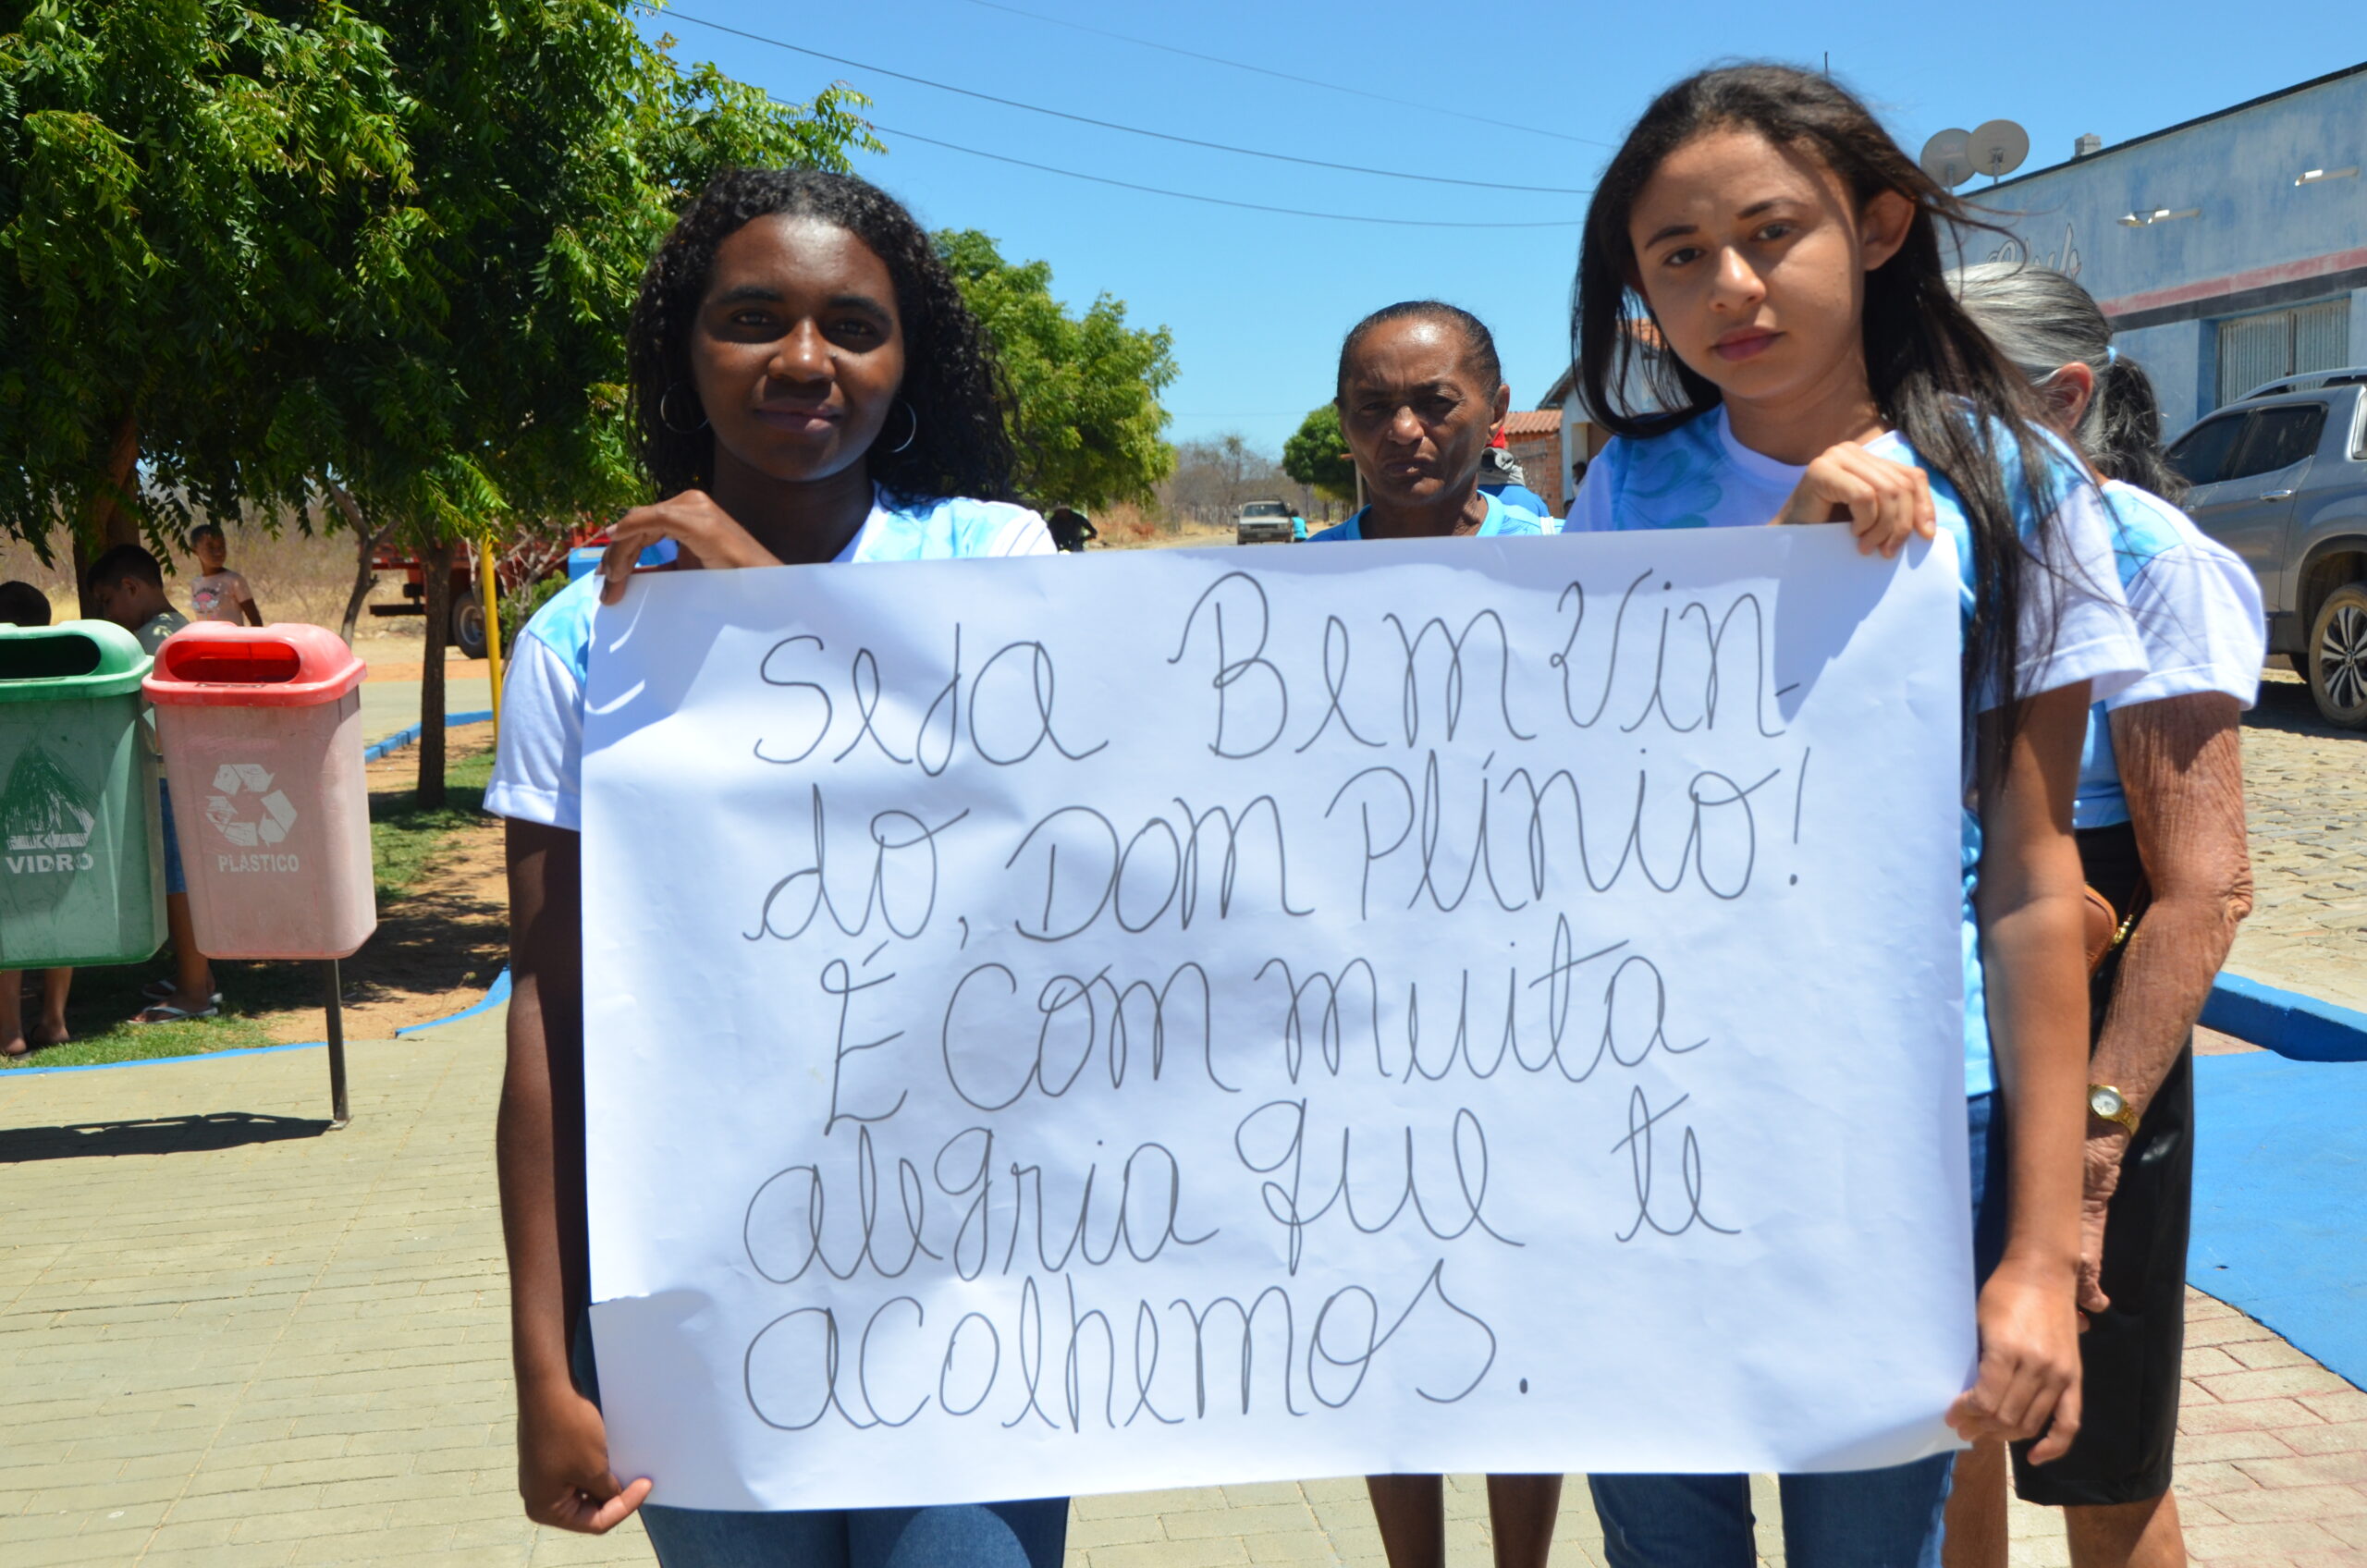 Seja Bemvin-
do, Dom Plínio!
É com muita
alegria que te
acolhemos.
VIDRO
PLÁSTICO
Club